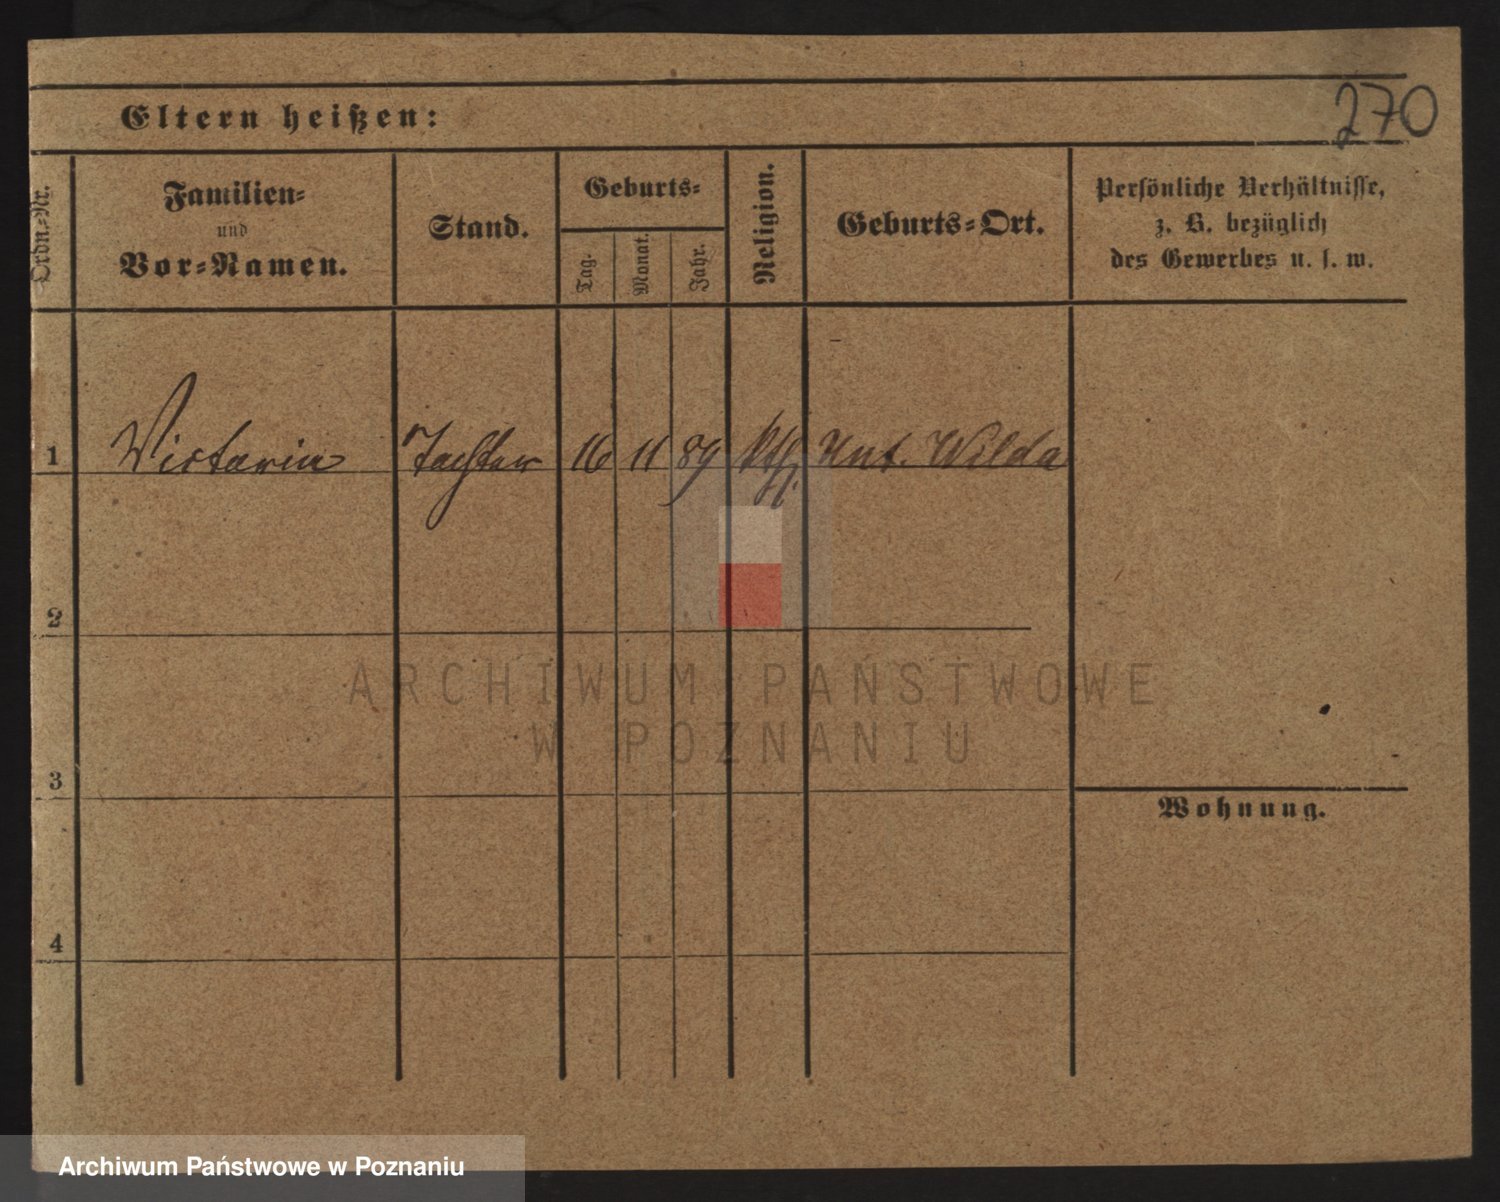 270
Eltern heißen:
Ordn.=Nr.
Familien=
und
Vor=Namen.
Stand.
Geburts=
Tag.
Monat.
Jahr.
Religion.
Geburts=Ort.
Persönliche Verhältnisse,
z. B. bezüglich
des Gewerbes u. s. w.
1 Victoria Tochter 16 11 89 kth. Unt. Wilda
2
3
4
Wohnung.
ARCHIWUM PAŃSTWOWE
W POZNANIU
Archiwum Państwowe w Poznaniu